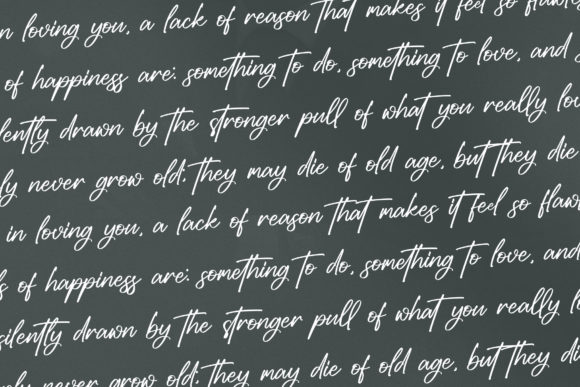 in loving you, a lack of reason that makes it feel so flawl
of happiness are: something to do, something to love, and s
silently drawn by the stronger pull of what you really lo
ly never grow old; they may die of old age, but they die
in loving you, a lack of reason that makes it feel so flawl
ls of happiness are: something to do, something to love, and
silently drawn by the stronger pull of what you really lo
ly never grow old; they may die of old age, but they di